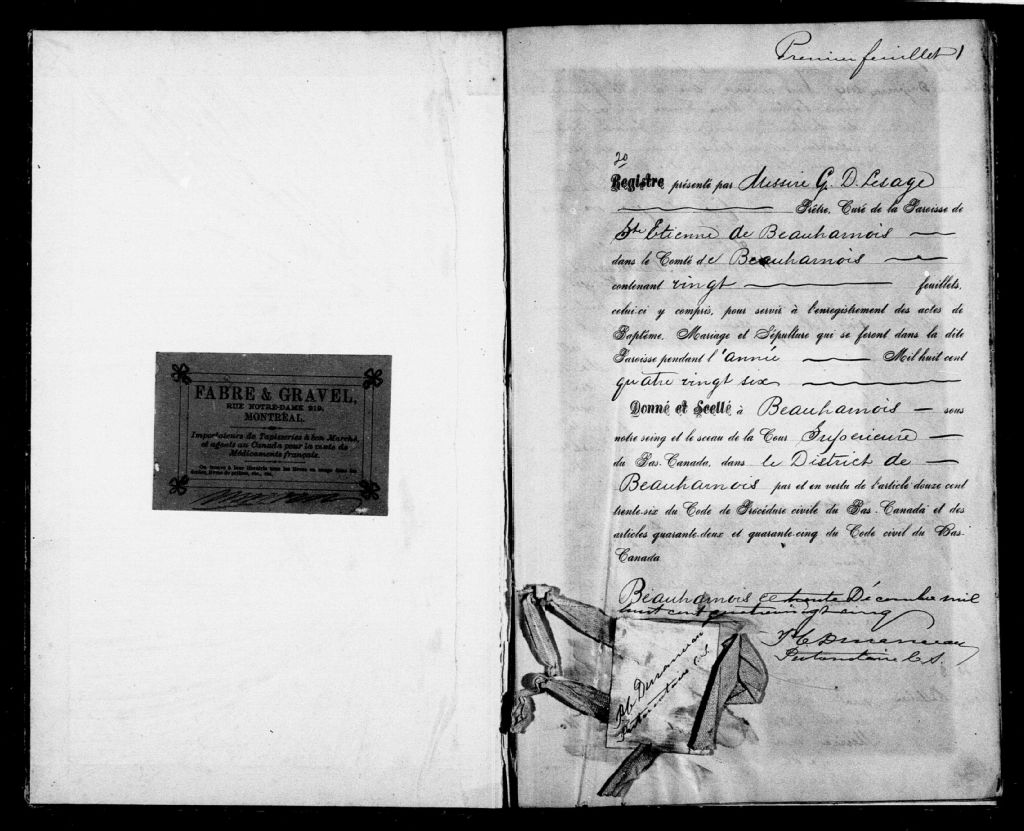 FABRE & GRAVEL,
RUE NOTRE-DAME 219,
MONTRÉAL.
Importateurs de Tapisseries à bon Marché,
et agents au Canada pour la vente de
Médicaments français.
On trouve à leur librairie tous les livres en usage dans les
écoles, livres de prières, etc., etc.
Premier feuillet 1
20
Registre présenté par Messire G. D. Lesage
Prêtre, Curé de la Paroisse de
St Etienne de Beauharnois
dans le Comté de Beauharnois
contenant vingt feuillets,
celui-ci y compris, pour servir à l'enregistrement des actes de
Baptême, Mariage et Sépulture qui se feront dans la dite
Paroisse pendant l'année Mil huit cent
quatre vingt six
Donné et Scellé à Beauharnois sous
notre seing et le sceau de la Cour Supérieure
du Bas-Canada, dans le District de
Beauharnois par et en vertu de l'article douze cent
trente-six du Code de Procédure civile du Bas-Canada et des
articles quarante-deux et quarante-cinq du Code civil du Bas-
Canada
Beauharnois ce trente Décembre mil
huit cent quatre vingt cinq
Protonotaire C. S.
Protonotaire C. S.